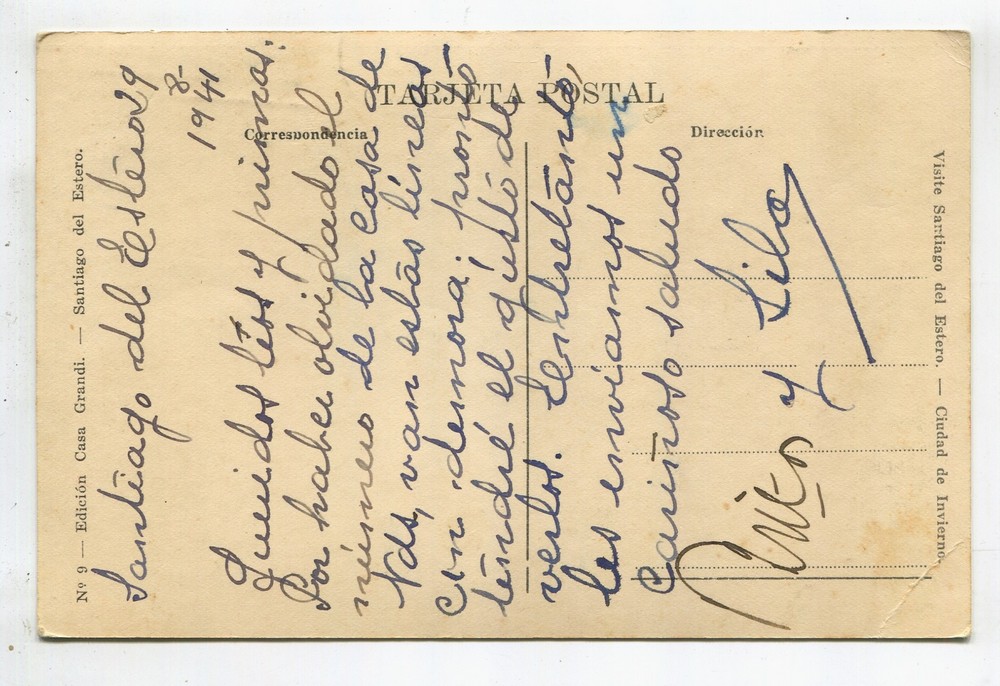 TARJETA POSTAL
Correspondencia
Dirección
Nº 9 — Edición Casa Grandi. — Santiago del Estero.
Visite Santiago del Estero. — Ciudad de Invierno.
Santiago del Estero 29
8
1941
Queridos tios y primas:
Por haber olvidado el
número de la casa de
Vds, van estas líneas
con demora; pronto
tendré el gusto de
verlos. Entretanto
les enviamos un
cariñoso saludo
y Lila